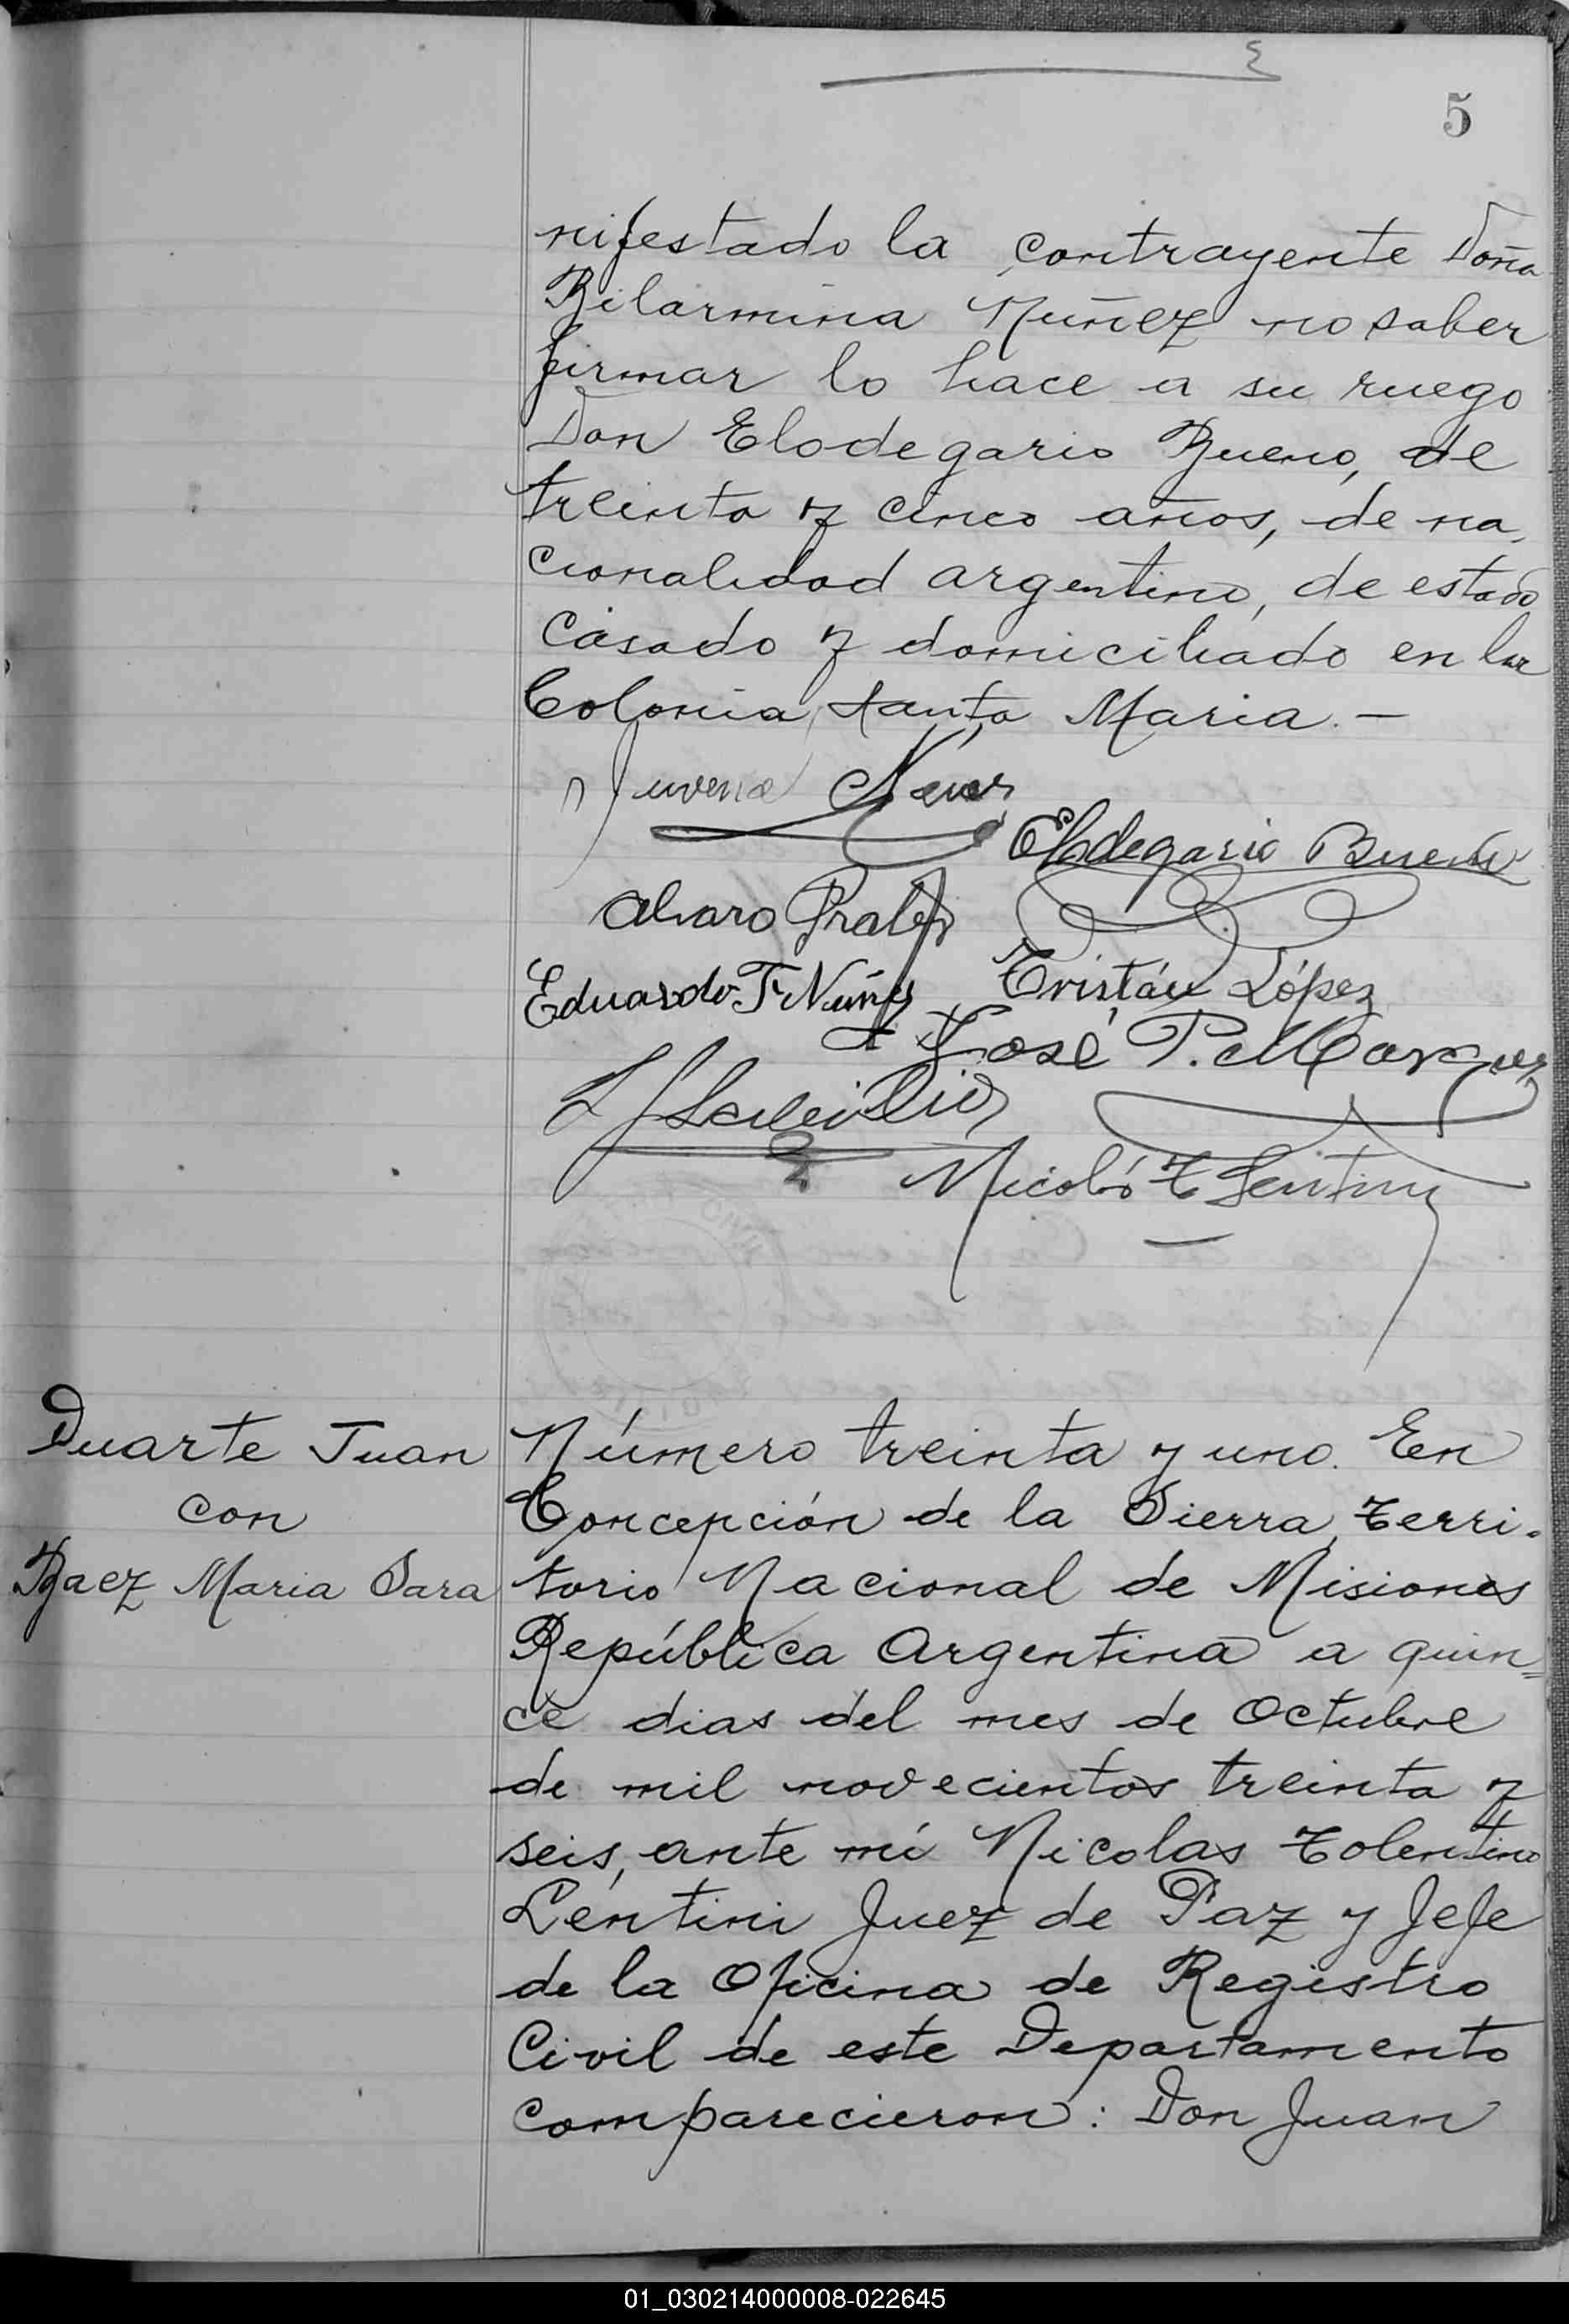 5
nifestado la contrayente Doña
Bilarmina Nuñez no saber
firmar lo hace a su ruego
Don Elodegario Bueno, de
treinta y cinco años, de na
cionalidad argentino, de estado
casado y domiciliado en la
Colonia Santa Maria. -
Elodegario Bueno
Alvaro Prates
Eduardo F. Nuñez Tristán López
José P. Marquez
Nicolás T Lentini
Duarte Juan
con
Baez Maria Sara
Número treinta y uno. En
Concepción de la Sierra, Terri-
torio Nacional de Misiones
República Argentina a quin=
ce dias del mes de Octubre
de mil novecientos treinta y
seis, ante mí Nicolas Tolentino
Lentini Juez de Paz y Jefe
de la Oficina de Registro
Civil de este Departamento
comparecieron: Don Juan
01_030214000008-022645